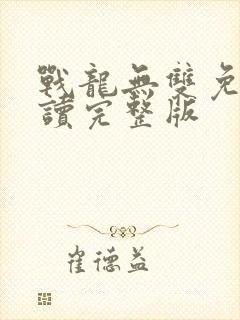 戰龍無雙免
讀完整版
崔德益